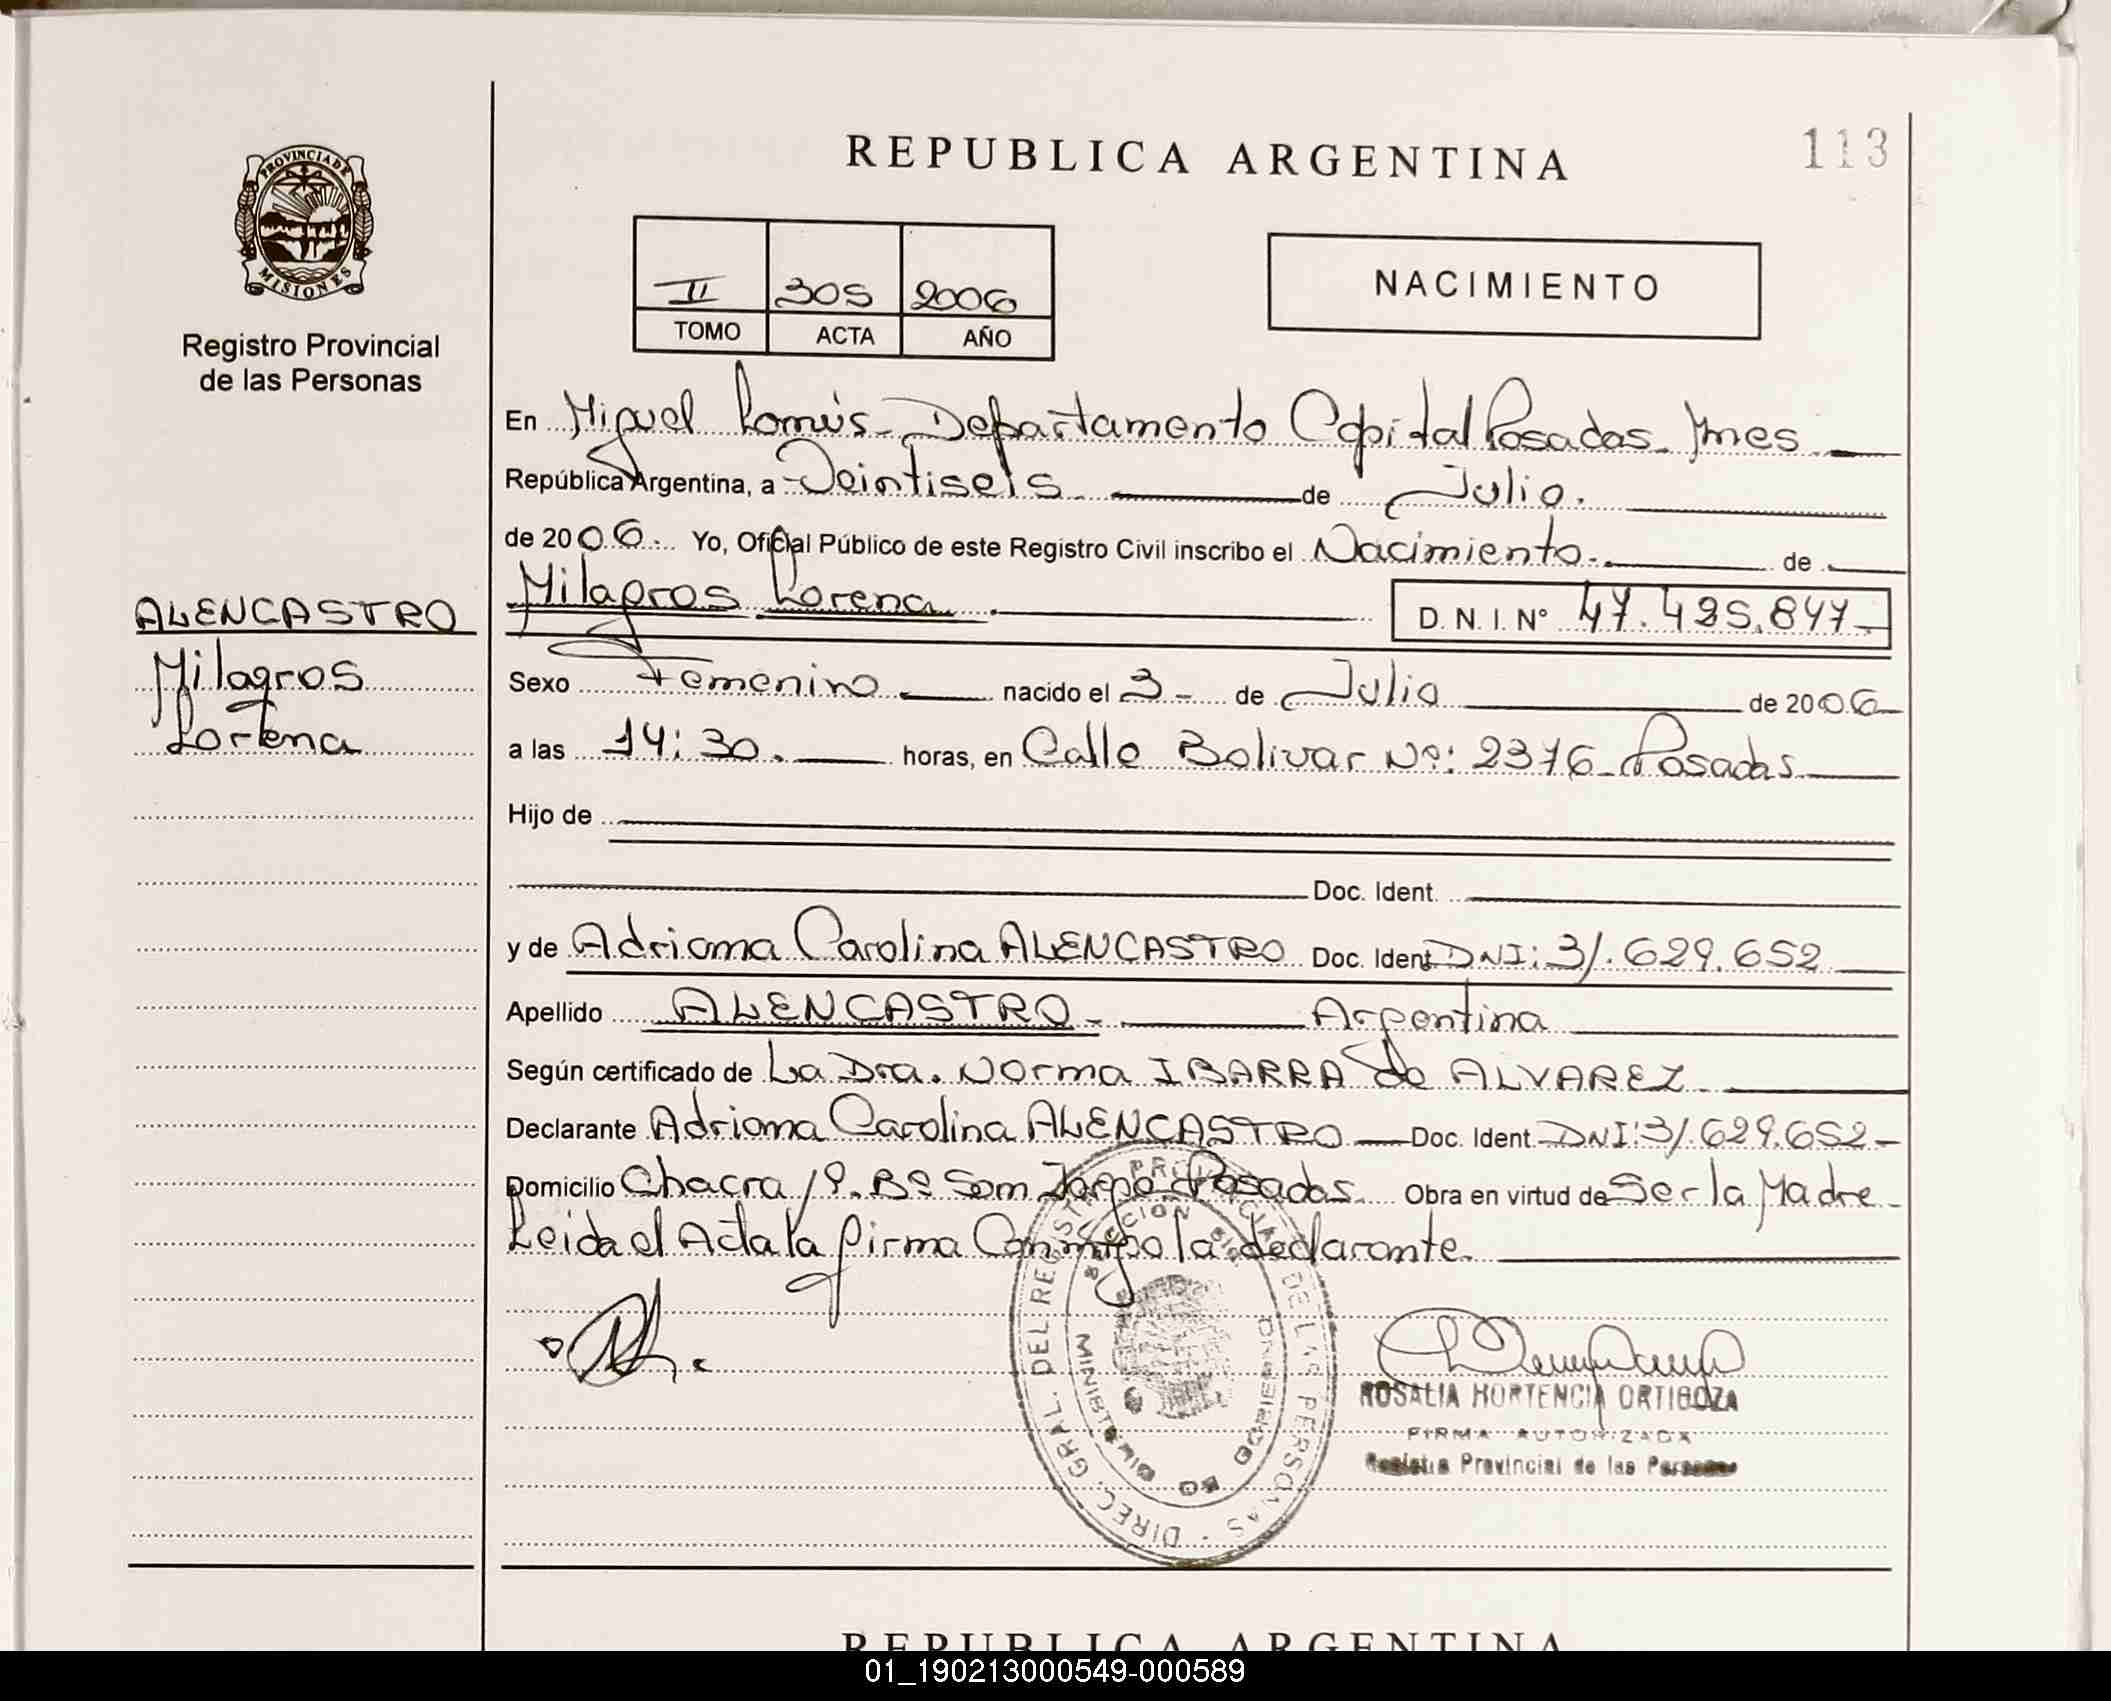 REPUBLICA ARGENTINA
113
PROVINCIA DE
MISIONES
Registro Provincial
de las Personas
II 305 2006
TOMO ACTA AÑO
NACIMIENTO
En Miguel Lanús - Departamento Capital Posadas - Mnes
República Argentina, a Veintiseis de Julio.
de 2006. Yo, Oficial Público de este Registro Civil inscribo el Nacimiento. de
Milagros Lorena. D. N. I. Nº 47.425.847-
ALENCASTRO
Milagros
Lorena
Sexo Femenino nacido el 3- de Julio de 2006
a las 14:30. horas, en Calle Bolivar Nº: 2376 - Posadas
Hijo de
Doc. Ident.
y de Adriana Carolina ALENCASTRO Doc. Ident DNI: 31.629.652
Apellido ALENCASTRO- Argentina
Según certificado de La Dra. Norma IBARRA de ALVAREZ
Declarante Adriana Carolina ALENCASTRO Doc. Ident. DNI: 31.629.652-
Domicilio Chacra Bº San Posadas Obra en virtud de Ser la Madre-
Leida el Acta la firma Conmigo la declarante.
DIREC. GRAL. DEL REGISTRO PROVINCIAL DE LAS PERSONAS
ROSALIA HORTENCIA ORTIGOZA
FIRMA AUTORIZADA
Registro Provincial de las Personas
REPUBLICA ARGENTINA
01_190213000549-000589